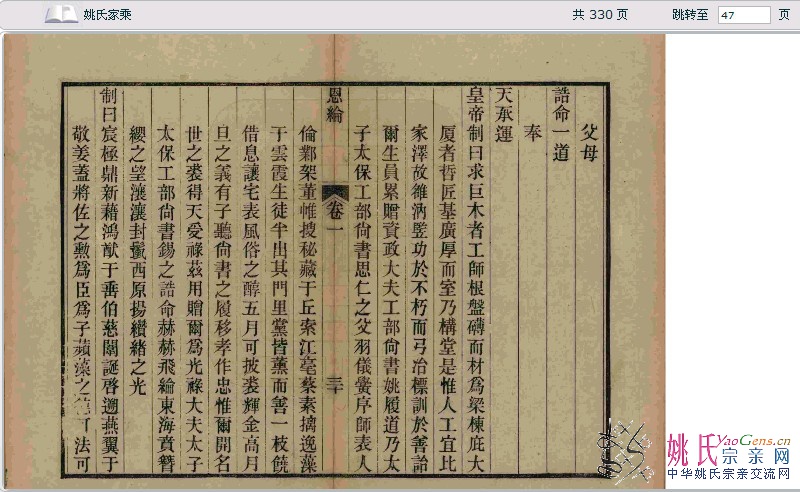 姚氏家乘
共 330 页
跳转至 47 页
父母
誥命一道
奉
天承運
皇帝制曰求巨木者工師根盤礴而材爲梁棟庇大
厦者哲匠基廣厚而室乃構堂是惟人工宜比
家澤故維汭墅功於不朽而弓冶標訓於善詒
爾生員累贈資政大夫工部尙書姚履道乃太
子太保工部尙書思仁之父羽儀黌序師表人
恩綸
卷一
三十
倫鄴架董帷搜秘藏于丘索江毫蔡素摛逸藻
于雲霞生徒半出其門里黨皆薰而善一枝饒
借息讓宅表風俗之醇五月可披裘輝金高月
旦之義有子聽尙書之履移孝作忠惟爾開名
世之裘得天受祿茲用贈爾爲光祿大夫太子
太保工部尙書錫之誥命赫赫飛綸東海賁簪
纓之望瀼瀼封鬣西原揚纘緒之光
制曰宸極鼎新藉鴻猷于垂伯慈闈誕啓遡燕翼于
敬姜蓋將佐之勲爲臣爲子蘋藻之可法可
姚氏YaoGens.cn
宗亲网
中华姚氏宗亲交流网